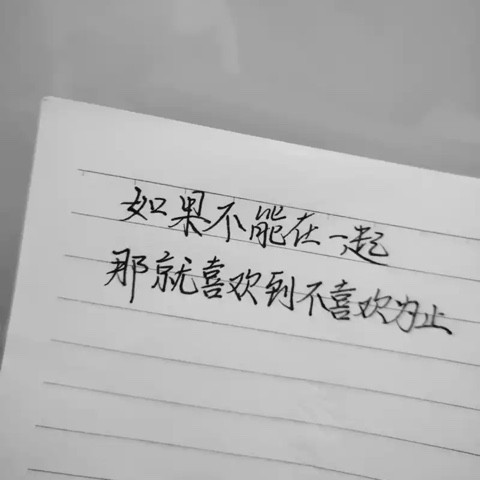 如果不能在一起
那就喜欢到不喜欢为止